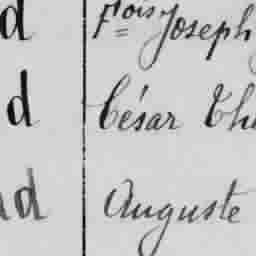 d Fçois Joseph
d César Th
d Auguste